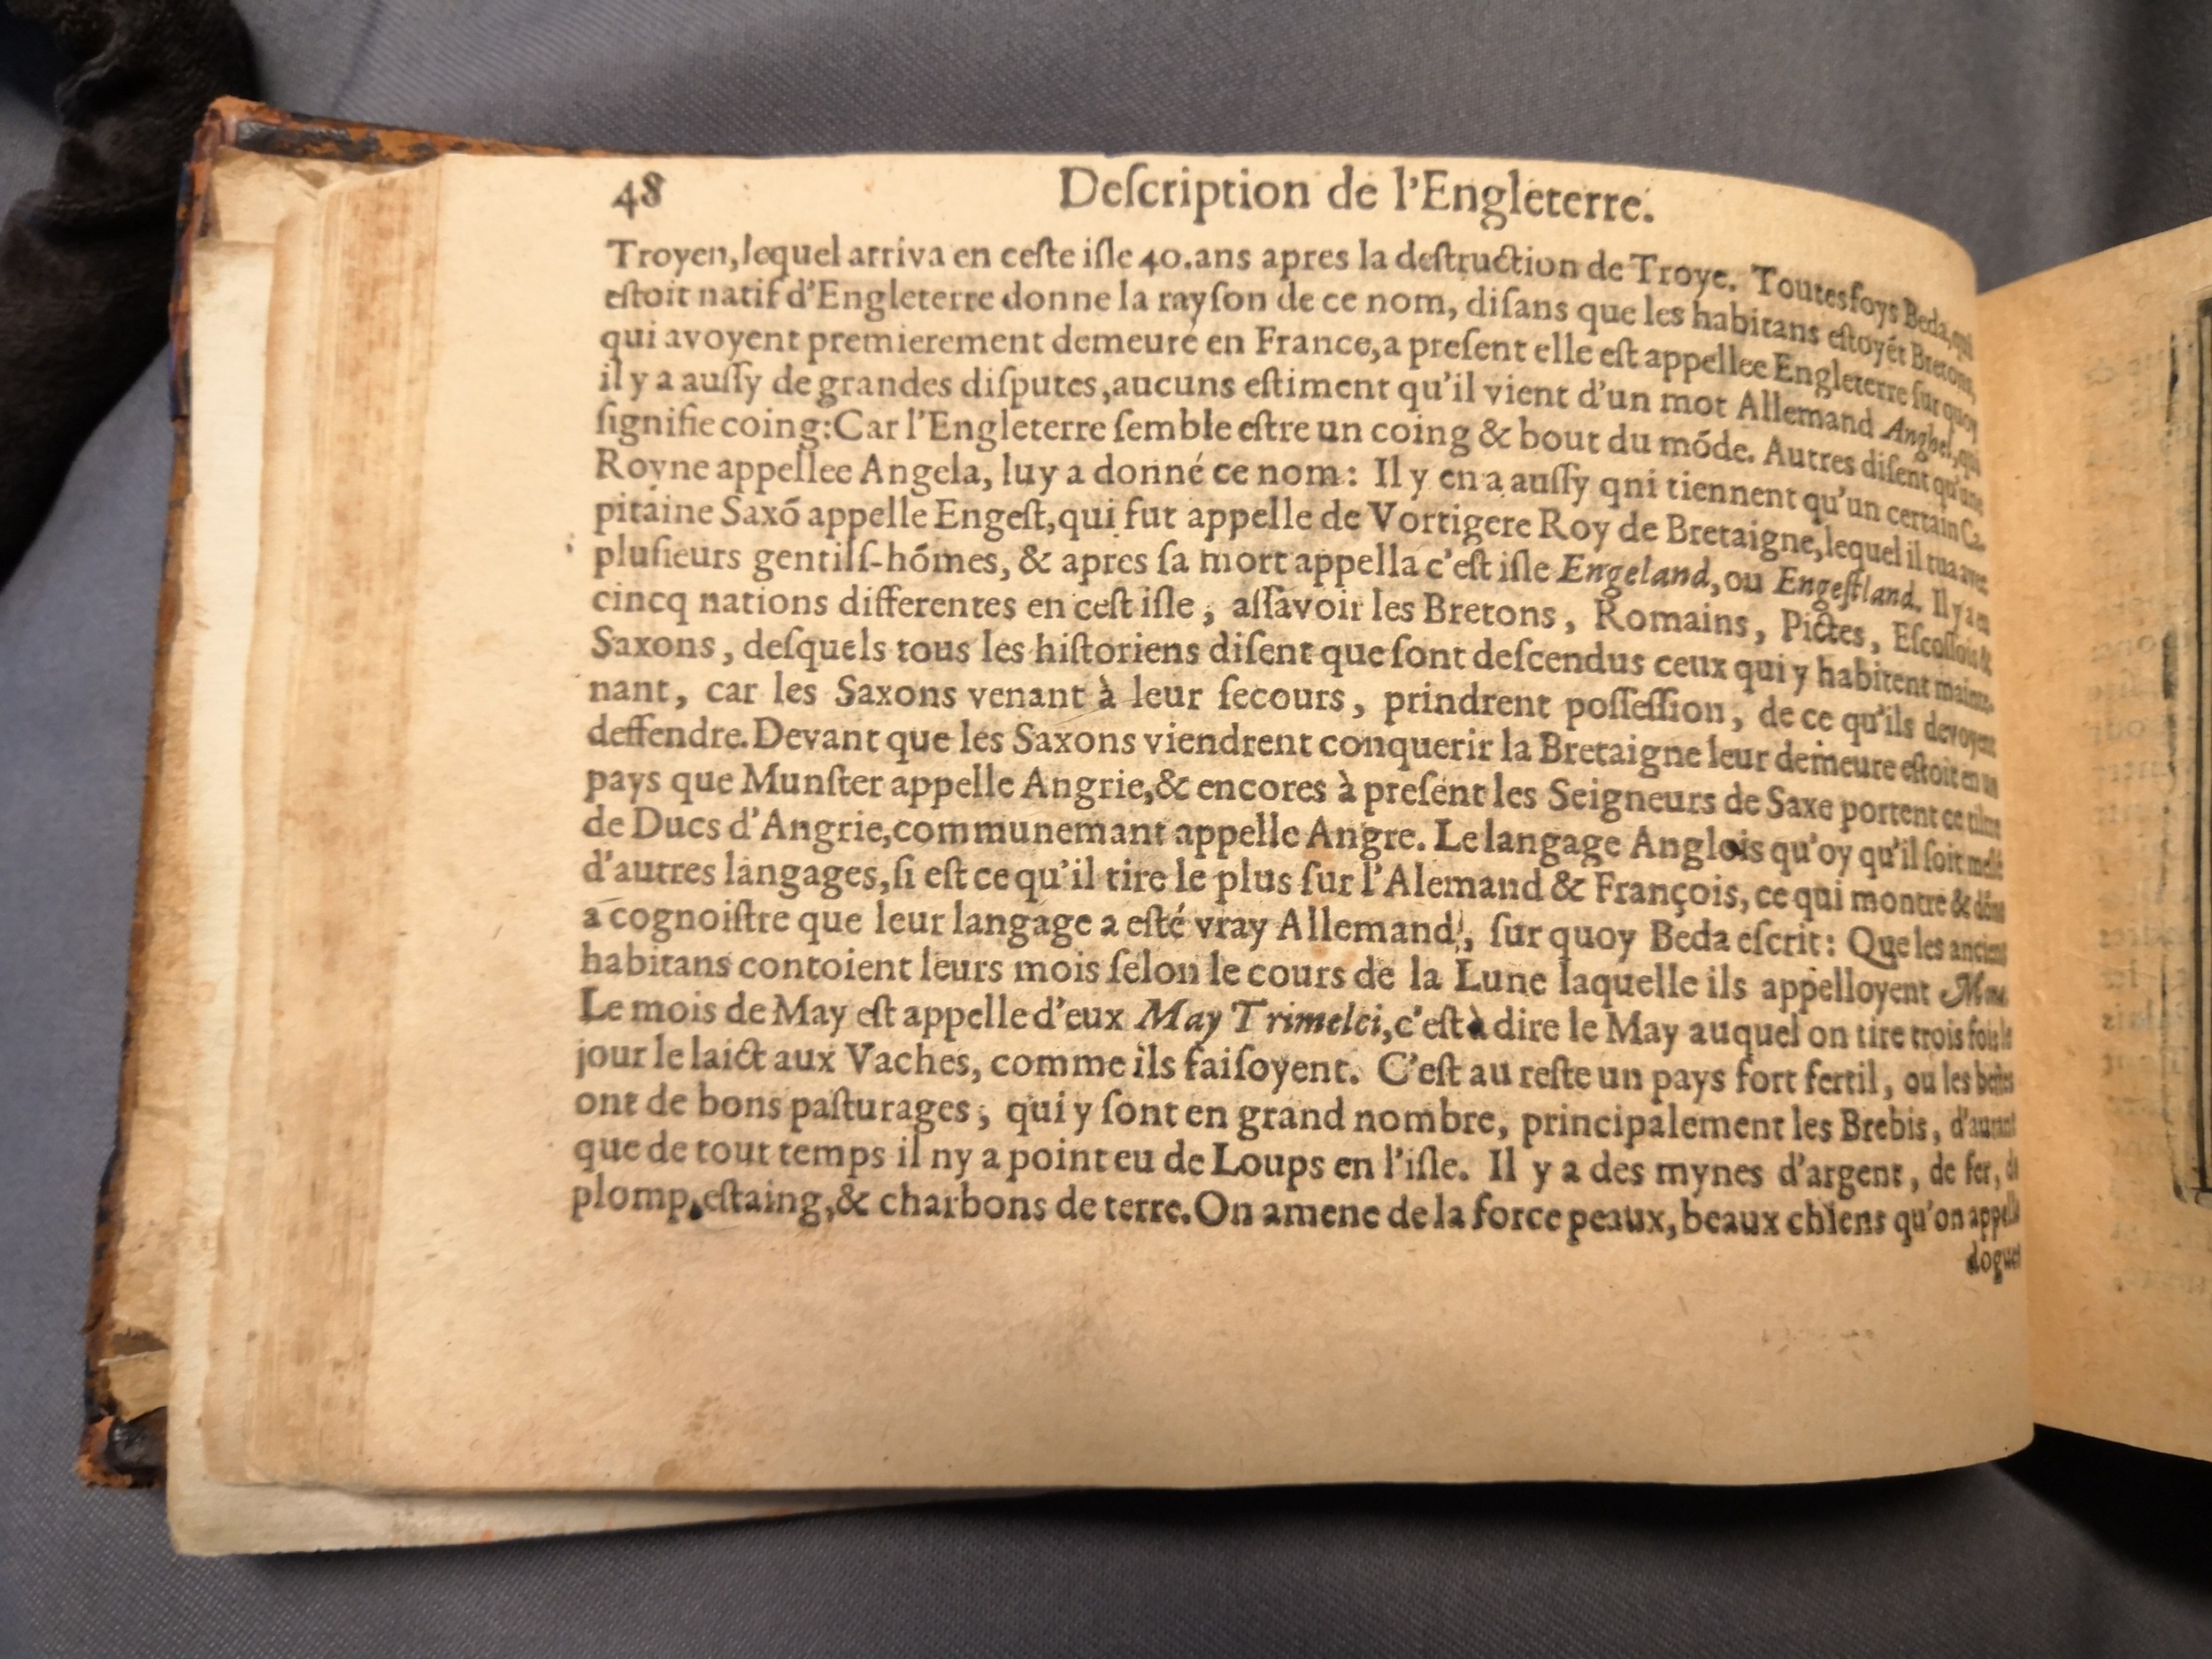 48 Deſcription de l'Engleterre.
Troyen, lequel arriva en ceſte iſle 40. ans apres la deſtruction de Troye. Toutesfoys Beda, qui
eſtoit natif d'Engleterre donne la rayſon de ce nom, diſans que les habitans eſtoyét Bretons,
qui avoyent premierement demeuré en France, a preſent elle eſt appellee Engleterre ſur quoy
il y a auſſy de grandes diſputes, aucuns eſtiment qu'il vient d'un mot Allemand Anghel, qui
ſignifie coing: Car l'Engleterre ſemble eſtre un coing & bout du móde. Autres diſent qu'une
Royne appellee Angela, luy a donné ce nom: Il y en a auſſy qni tiennent qu'un certain Ca-
pitaine Saxó appelle Engeſt, qui fut appelle de Vortigere Roy de Bretaigne, lequel il tua avec
pluſieurs gentilſ-hómes, & apres ſa mort appella c'eſt iſle Engeland, ou Engeſtland. Il y a eu
cincq nations differentes en ceſt iſle, aſſavoir les Bretons, Romains, Pictes, Eſcoſſois &
Saxons, deſquels tous les hiſtoriens diſent que ſont deſcendus ceux qui y habitent mainte-
nant, car les Saxons venant à leur ſecours, prindrent poſſeſſion, de ce qu'ils devoyent
deffendre. Devant que les Saxons viendrent conquerir la Bretaigne leur demeure eſtoit en un
pays que Munſter appelle Angrie, & encores à preſent les Seigneurs de Saxe portent ce
de Ducs d'Angrie, communemant appelle Angre. Le langage Anglois qu'oy qu'il ſoit
d'autres langages, ſi eſt ce qu'il tire le plus ſur l'Alemand & François, ce qui montre &
a cognoiſtre que leur langage a eſté vray Allemand, ſur quoy Beda eſcrit: Que les anciens
habitans contoient leurs mois ſelon le cours de la Lune laquelle ils appelloyent
Le mois de May eſt appelle d'eux May Trimelci, c'eſt à dire le May auquel on tire trois fois le
jour le laict aux Vaches, comme ils faiſoyent. C'eſt au reſte un pays fort fertil, ou les beſtes
ont de bons paſturages, qui y ſont en grand nombre, principalement les Brebis, d'autant
que de tout temps il ny a point eu de Loups en l'iſle. Il y a des mynes d'argent, de fer, de
plomp, eſtaing, & charbons de terre. On amene de la force peaux, beaux chiens qu'on appelle